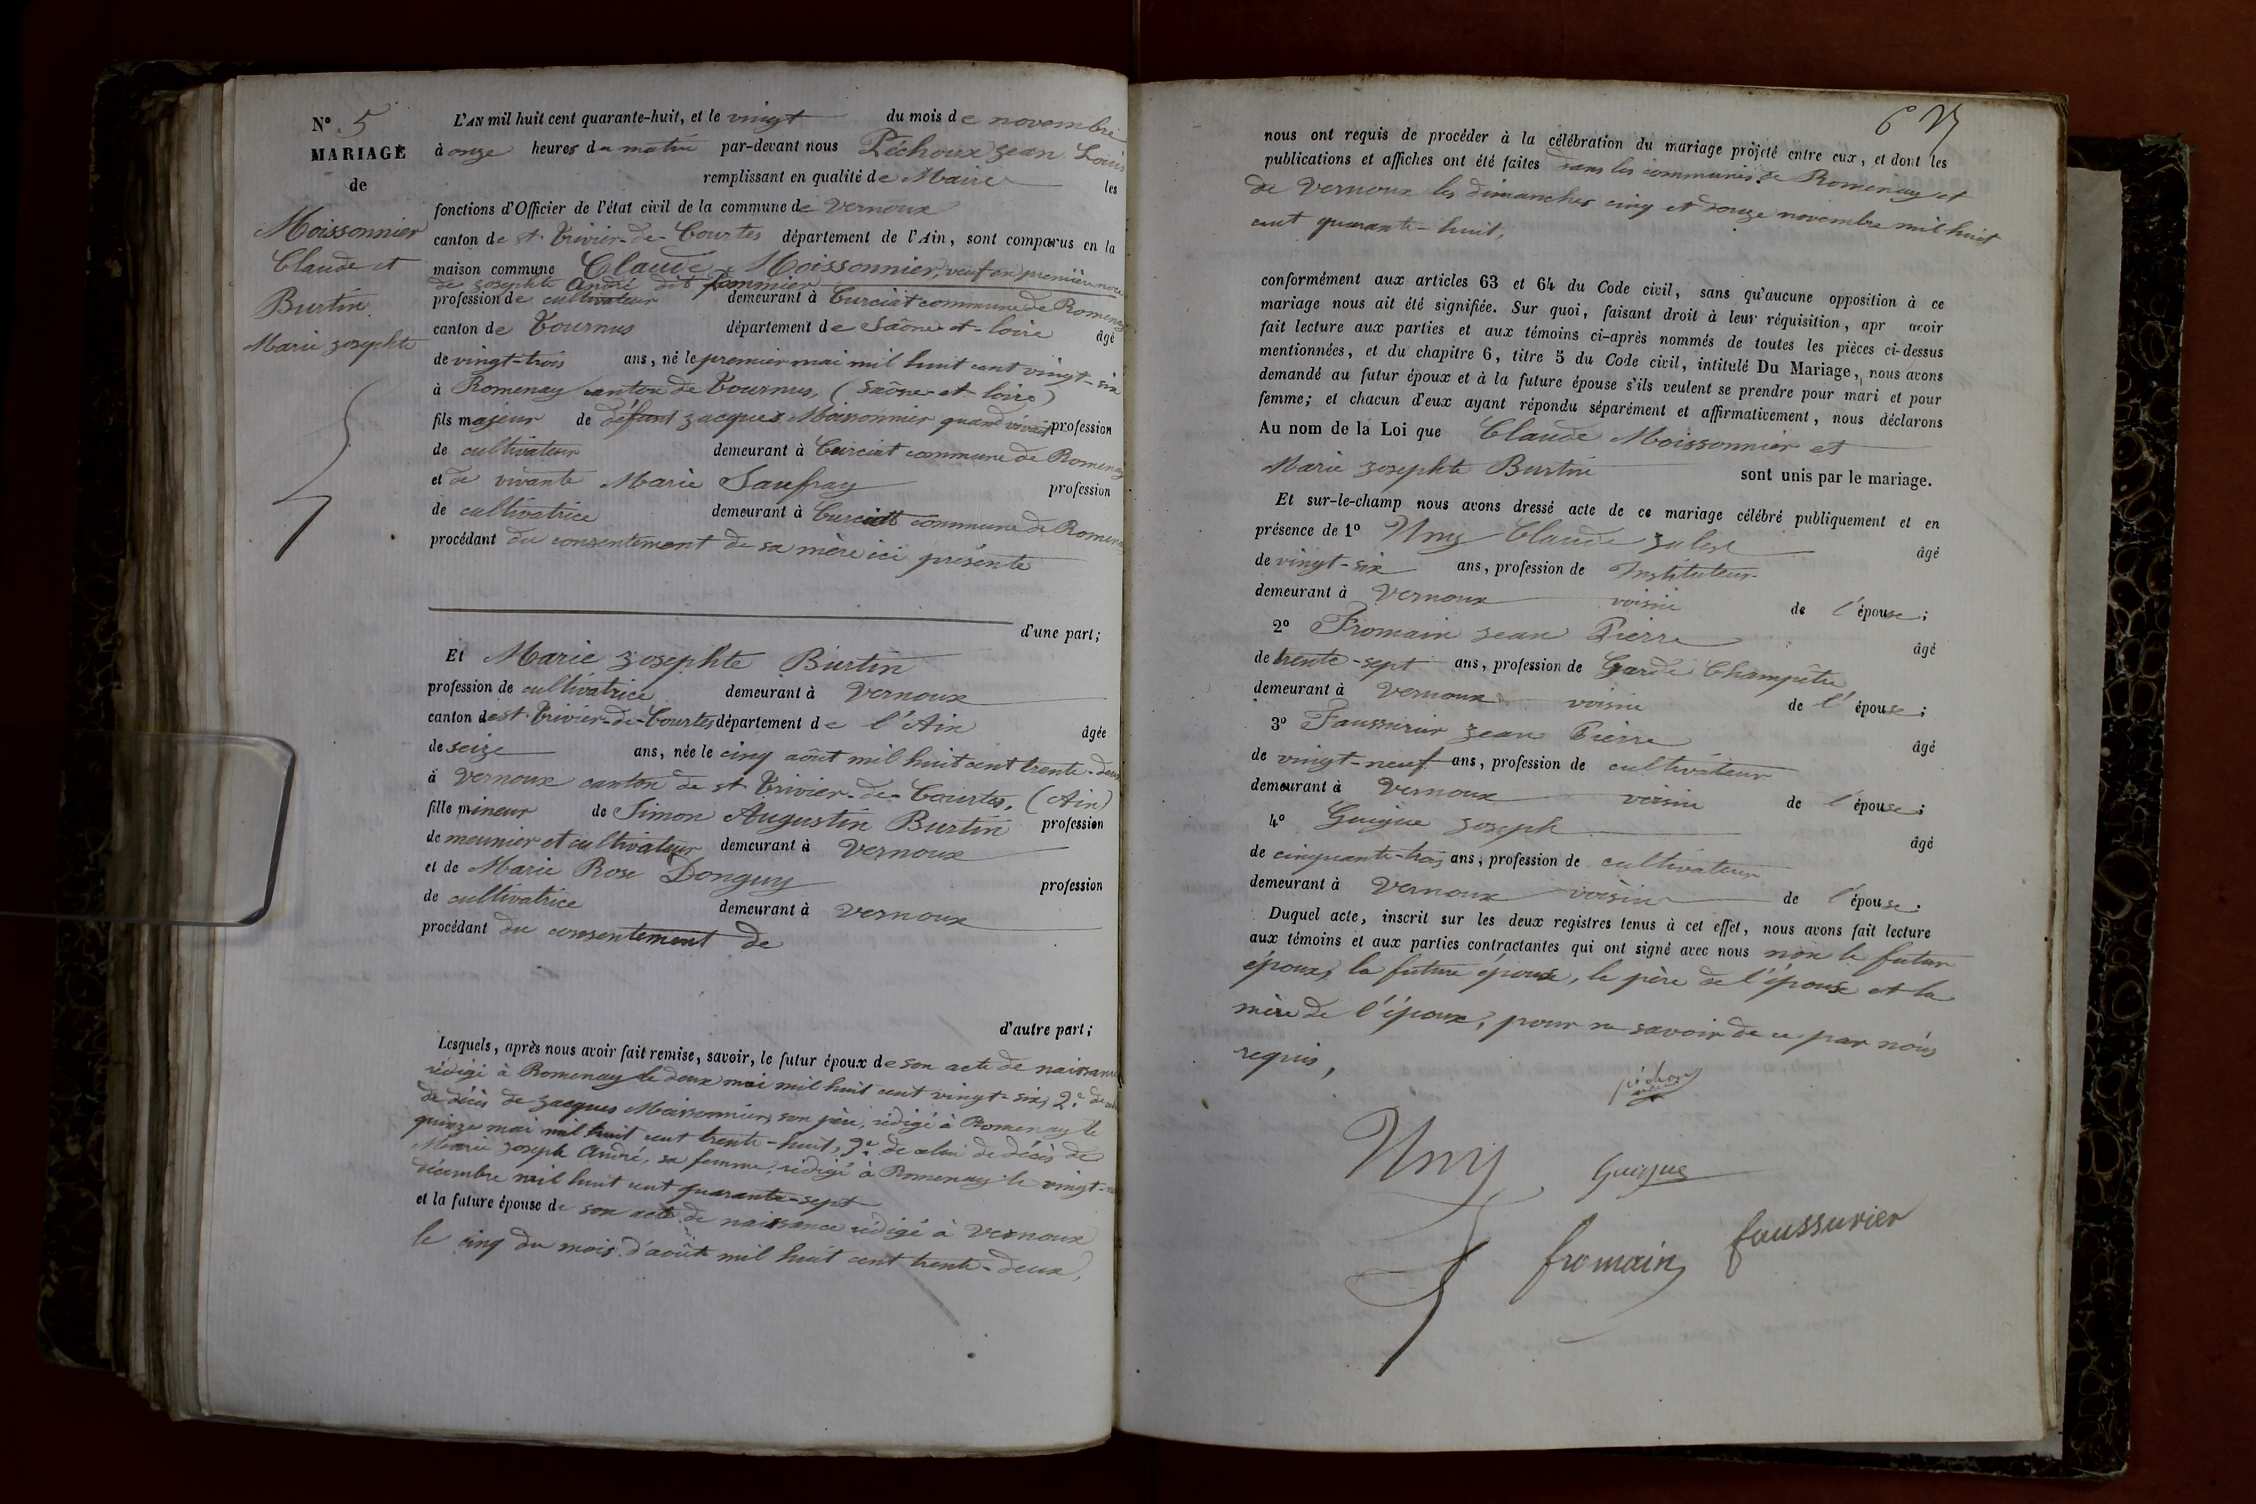 N° 5
MARIAGE
de
Moissonnier
Claude et
Burtin
Marie Josephte
L'AN mil huit cent quarante-huit, et le vingt du mois de novembre
à onze heures du matin par-devant nous Péchoux Jean Louis
remplissant en qualité de Maire les
fonctions d'Officier de l'état civil de la commune de Vernoux
canton de St Trivier-de-Courtes département de l'Ain, sont comparus en la
maison commune Claude Moissonnier, veuf en première noce
de Josephte André dit Pommier
profession de cultivateur demeurant à Curciat commune de Romenay
canton de Tournus département de Saône-et-Loire âgé
de vingt-trois ans, né le premier mai mil huit cent vingt-six
à Romenay canton de Tournus, (Saône-et-Loire)
fils majeur de défunt Jacques Moissonnier quand vivait profession
de cultivateur demeurant à Curciat commune de Romenay
et de vivante Marie Saufray profession
de cultivatrice demeurant à Curciat commune de Romenay
procédant du consentement de sa mère ici présente
d'une part;
Et Marie Josephte Burtin
profession de cultivatrice demeurant à Vernoux
canton de St Trivier-de-Courtes département de l'Ain âgée
de seize ans, née le cinq août mil huit cent trente-deux
à Vernoux canton de St Trivier-de-Courtes, (Ain)
fille mineur de Simon Augustin Burtin profession
de meunier et cultivateur demeurant à Vernoux
et de Marie Rose Donguy profession
de cultivatrice demeurant à Vernoux
procédant du consentement de
d'autre part;
Lesquels, après nous avoir fait remise, savoir, le futur époux de son acte de naissance
rédigé à Romenay le deux mai mil huit cent vingt-six, 2e de celui
de décès de Jacques Moissonnier, son père, rédigé à Romenay le
quinze mai mil huit cent trente-huit, 3e de celui de décès de
Marie Joseph André, sa femme, rédigé à Romenay le vingt-
décembre mil huit cent quarante-sept
et la future épouse de son acte de naissance rédigé à Vernoux
le cinq du mois d'août mil huit cent trente-deux,
6
nous ont requis de procéder à la célébration du mariage projeté entre eux, et dont les
publications et affiches ont été faites dans les communes de Romenay et
de Vernoux les dimanches cinq et douze novembre mil huit
cent quarante-huit,
conformément aux articles 63 et 64 du Code civil, sans qu'aucune opposition à ce
mariage nous ait été signifiée. Sur quoi, faisant droit à leur réquisition, apr avoir
fait lecture aux parties et aux témoins ci-après nommés de toutes les pièces ci-dessus
mentionnées, et du chapitre 6, titre 5 du Code civil, intitulé Du Mariage, nous avons
demandé au futur époux et à la future épouse s'ils veulent se prendre pour mari et pour
femme; et chacun d'eux ayant répondu séparément et affirmativement, nous déclarons
Au nom de la Loi que Claude Moissonnier et
Marie Josephte Burtin sont unis par le mariage.
Et sur-le-champ nous avons dressé acte de ce mariage célébré publiquement et en
présence de 1° Uny Claude âgé
de vingt-six ans, profession de Instituteur
demeurant à Vernoux voisin de l'épouse;
2° Fromain Jean Pierre âgé
de trente-sept ans, profession de Garde Champêtre
demeurant à Vernoux voisin de l'épouse;
3° Faussurier Jean Pierre âgé
de vingt-neuf ans, profession de cultivateur
demeurant à Vernoux voisin de l'épouse;
4° Guigue Joseph âgé
de cinquante-trois ans, profession de cultivateur
demeurant à Vernoux voisin de l'épouse.
Duquel acte, inscrit sur les deux registres tenus à cet effet, nous avons fait lecture
aux témoins et aux parties contractantes qui ont signé avec nous non le futur
époux, la future épouse, le père de l'épouse et la
mère de l'époux, pour ne savoir de ce par nous
requis,
Uny
Guigue
fromain
faussurier